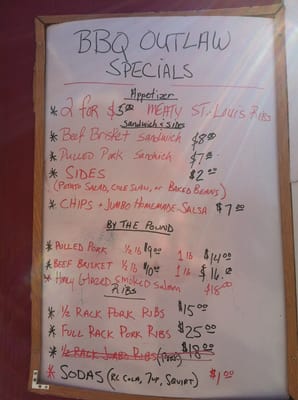 BBQ OUTLAW
SPECIALS
Appetizer
* 2 FOR $5.00 MEATY ST. LOUIS RIBS
SANDWICH & SIDES
* Beef Brisket Sandwich $8.00
* Pulled Pork Sandwich $7.00
* SIDES $2.00
(POTATO SALAD, COLE SLAW, OR BAKED BEANS)
* CHIPS + JUMBO HOMEMADE SALSA $7.00
BY THE POUND
* PULLED PORK 1/2 lb $9.00 1 lb $14.00
* BEEF BRISKET 1/2 lb $10.00 1 lb $16.00
* Honey Glazed Smoked Salmon $18.00
RIBS
* 1/2 RACK PORK RIBS $15.00
* FULL RACK PORK RIBS $25.00
* 1/2 RACK RIBS $18.00
* SODAS (RC COLA, 7UP, SQUIRT) $1.00